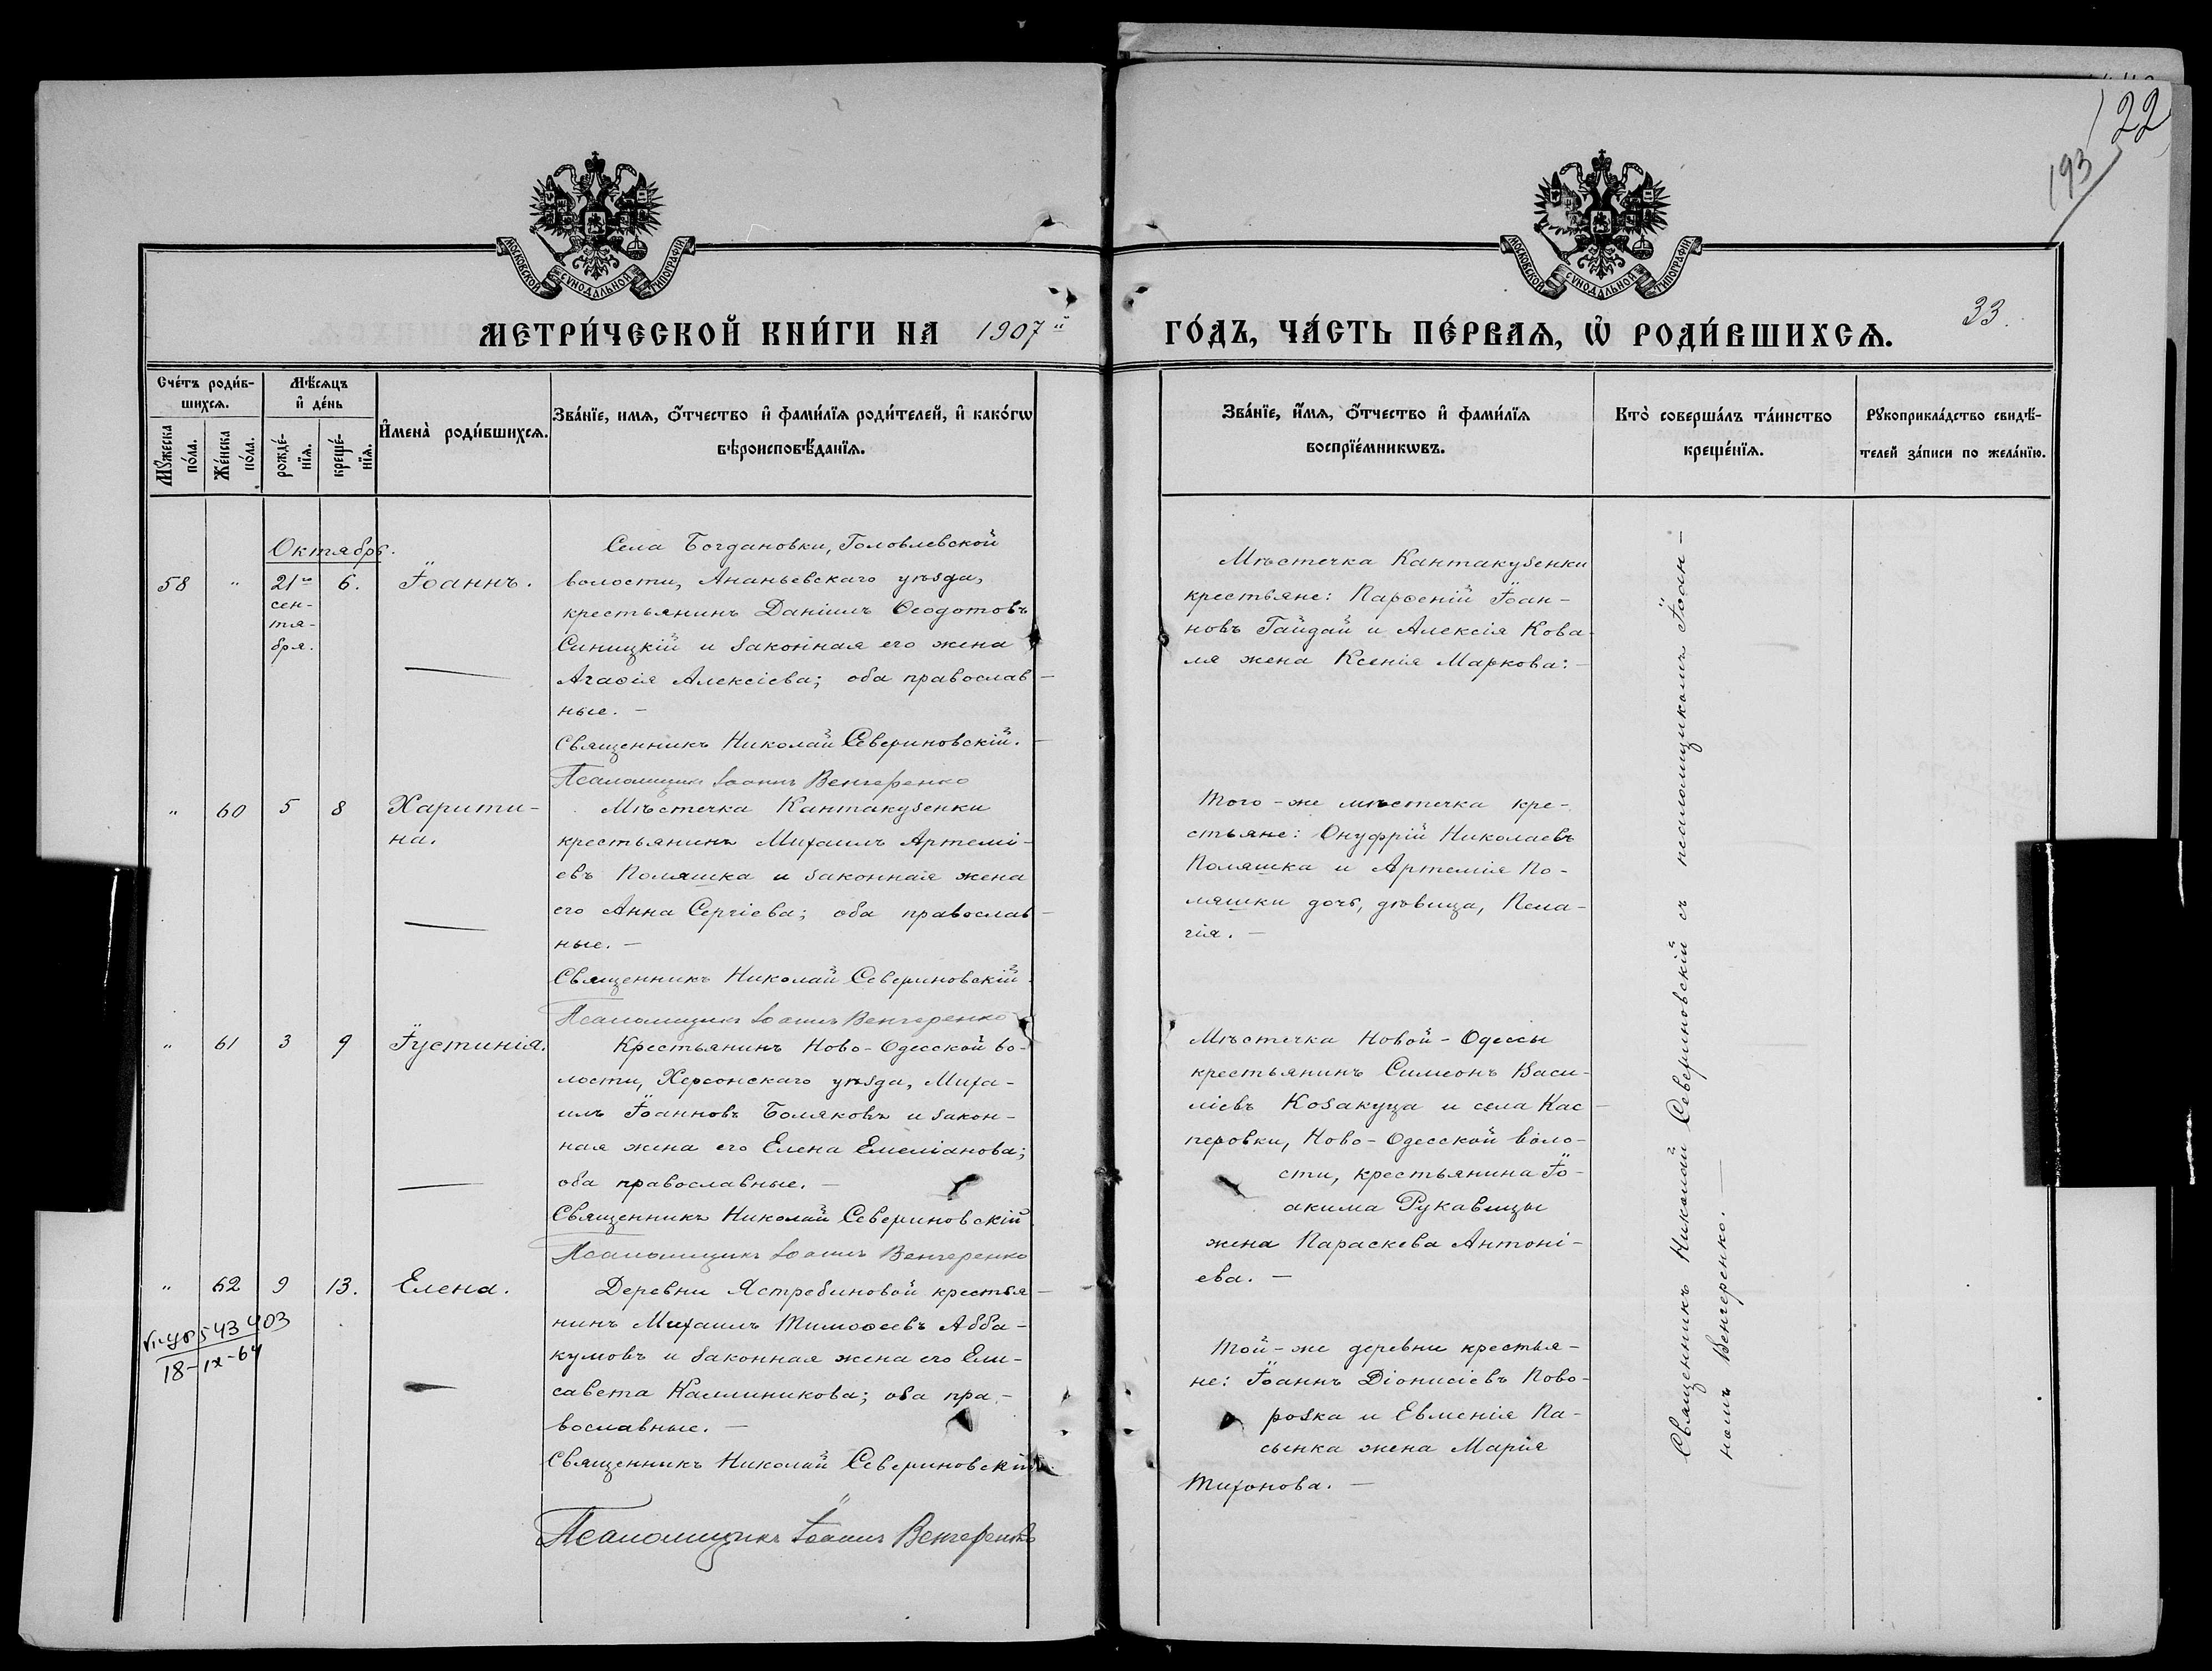 122
193
МОСКОВСКОЙ СѴНОДАЛЬНОЙ ТИПОГРАФІИ
МОСКОВСКОЙ СѴНОДАЛЬНОЙ ТИПОГРАФІИ
МЕТРИ́ЧЕСКОЙ КНИ́ГИ НА 1907й
ГО́ДЪ, ЧА́СТЬ ПЕ́РВАѦ, Ѡ҆ РОДИ́ВШИХСѦ.
33.
Сче́тъ роди́в-
шихсѧ.
Мꙋ́жеска по́ла.
Же́нска по́ла.
Мѣ́сѧцъ
и҆ де́нь
рожде́-
нїѧ.
креще́-
нїѧ.
И҆мена̀ роди́вшихсѧ.
Зва́нїе, имѧ, ѻ҆́тчество и҆ фами́лїѧ роди́телей, и҆ како́гѡ
вѣроисповѣ́данїѧ.
Зва́нїе, и҆́мѧ, ѻ҆́тчество и҆ фами́лїѧ
воспрїе́мникѡвъ.
Кто̀ соверша́лъ та́инство
креще́нїѧ.
Рꙋкоприкла́дство свидѣ́-
телей за́писи по жела́нїю.
Октябрь.
58
"
21го
сен-
тя-
бря.
6.
Іоаннъ.
Села Богдановки, Головлевской
волости, Ананьевскаго уѣзда,
крестьянинъ Даніилъ Ѳеодотовъ
Синицкій и законная его жена
Агаѳія Алексіева; оба православ-
ные. —
Священникъ Николай Севериновскій. —
Псаломщикъ Іоаннъ Венгеренко
Мѣстечка Кантакузенки
крестьяне: Парѳеній Іоан-
новъ Гайдай и Алексія Кова-
ля жена Ксенія Маркова: —
"
60
5
8
Харити-
на.
Мѣстечка Кантакузенки
крестьянинъ Михаилъ Артемі-
евъ Поляшка и законная жена
его Анна Сергіева; оба православ-
ные. —
Священникъ Николай Севериновскій.
Псаломщикъ Іоаннъ Венгеренко
Того-же мѣстечка кре-
стьяне: Онуфрій Николаевъ
Поляшка и Артемія По-
ляшки дочь, дѣвица, Пела-
гія. —
"
61
3
9
Іустинія.
Крестьянинъ Ново-Одесской во-
лости, Херсонскаго уѣзда, Миха-
илъ Іоанновъ Боляковъ и закон-
ная жена его Елена Емеліанова;
оба православные. —
Священникъ Николай Севериновскій
Псаломщикъ Іоаннъ Венгеренко
Мѣстечка Новой-Одессы
крестьянинъ Симеонъ Васи-
ліевъ Козакуца и села Кас-
перовки, Ново-Одесской воло-
сти, крестьянина Іо-
акима Рукавицы
жена Параскева Антоні-
ева. —
"
62
9
13.
Елена.
Деревни Ястребиновой крестья-
нинъ Михаилъ Тимоѳеевъ Абба-
кумовъ и законная жена его Ели-
савета Каллиникова; оба пра-
вославные. —
Священникъ Николай Севериновскій.
Псаломщикъ Іоаннъ Венгеренко
543403
18-IX-64
Той-же деревни крестья-
не: Іоаннъ Діонисіевъ Пово-
розка и Евменія Па-
сынка жена Марія
Тихонова. —
Священникъ Николай Севериновскій съ псаломщикомъ Іоан-
номъ Венгеренко. —